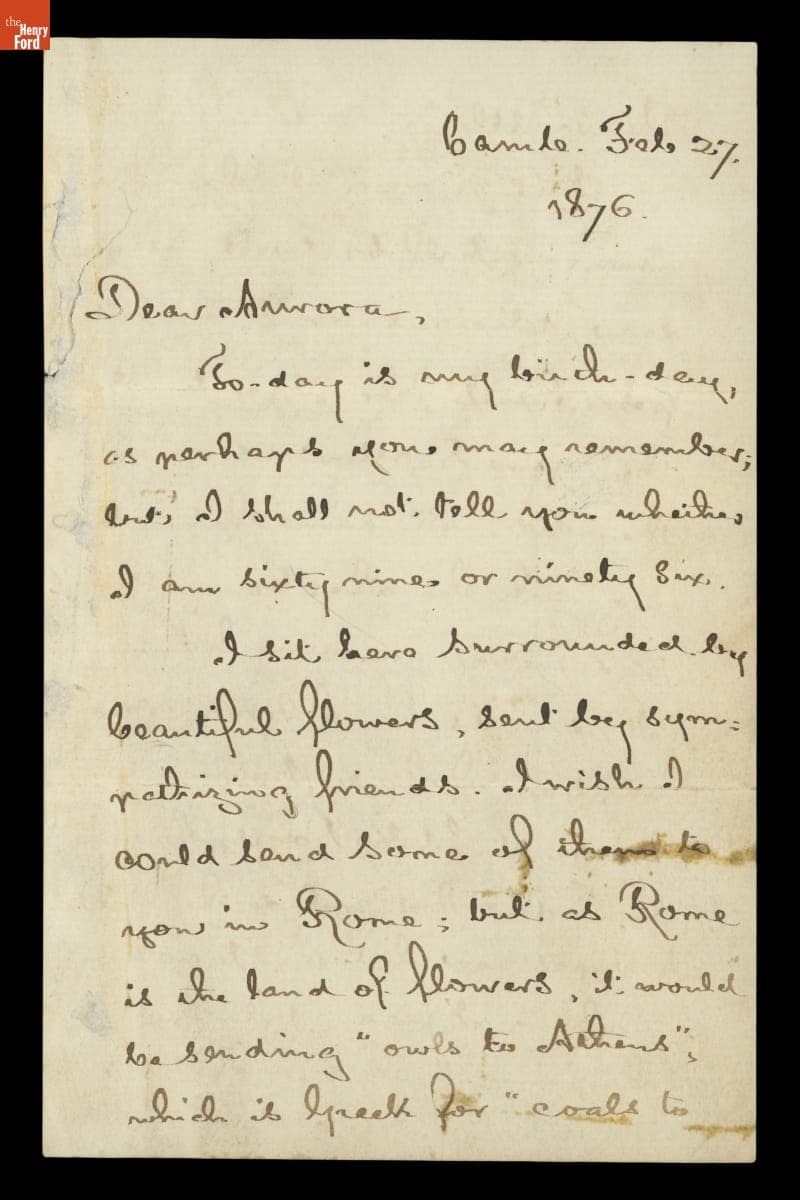 the
Henry
Ford
Camb. Feb 27.
1876.
Dear Aurora,
To-day is my birth-day,
as perhaps you may remember;
but I shall not tell you whether
I am sixty nine or ninety six.
I sit here surrounded by
beautiful flowers, sent by sym=
pathizing friends. I wish I
could send some of them to
you in Rome; but as Rome
is the land of flowers, it would
be sending "owls to Athens",
which is Greek for "coals to